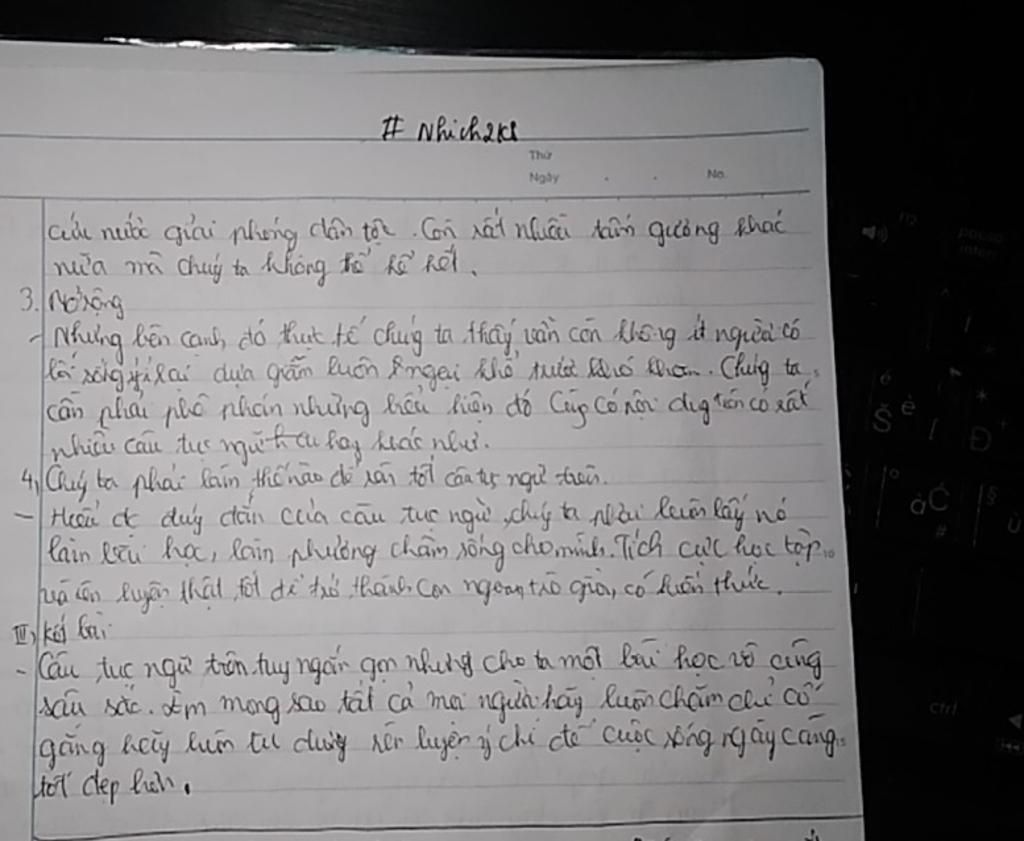 # Nhich2k8
Thứ
Ngày . . No.
cứu nước giải phóng dân tộc. Còn rất nhiều tấm gương khác
nữa mà chúng ta không thể kể hết.
3. Mở rộng
- Nhưng bên cạnh đó thực tế chúng ta thấy vẫn còn không ít người có
lối sống ỷ lại dựa giẫm luôn ngại khó trước khó khăn. Chúng ta
cần phải phê phán những biểu hiện đó Cũng có nội dung trên có rất
nhiều câu tục ngữ hay khác như.
4, Chúng ta phải làm thế nào để tốt câu tục ngữ trên.
- Hiểu đc đúng đắn của câu tục ngữ, chúng ta phải luôn lấy nó
làm bài học, làm phương châm sống cho mình. Tích cực học tập
và rèn luyện thật tốt để trở thành con ngoan, trò giỏi, có kiến thức.
III, Kết bài
- Câu tục ngữ trên tuy ngắn gọn nhưng cho ta một bài học vô cùng
sâu sắc. Em mong sao tất cả mọi người hãy luôn chăm chỉ cố
gắng hãy luôn tu dưỡng rèn luyện ý chí để cuộc sống ngày càng
tốt đẹp hơn.
ctrl